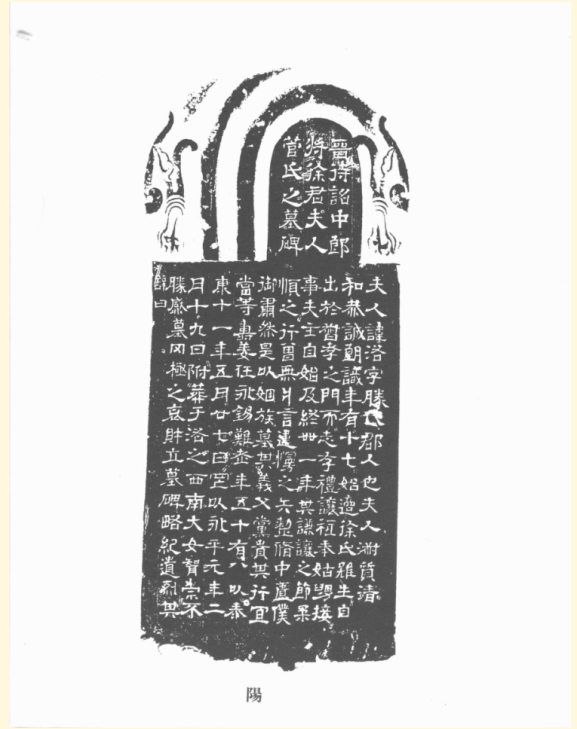 晉待詔中郎
將徐君夫人
菅氏之墓碑
夫人諱洛字勝代郡人也夫人淑質清
和恭誠朗識年有十七始適徐氏雖生自
出於督孝之門而志存禮讓祗奉姑舅接
事夫主自始及終卌一年其謙讓之節柔
順之行曾無片言違慢之矢整脩中匱僕
御肅然是以姻族慕其義父黨貴其行宜
當等壽姜任永錫難老年五十有八以泰
康十一年五月廿七日以永平元年二
月十九日附葬于洛之西南大女聟崇不
勝感慕罔極之哀財立墓碑略紀遺烈其
辭曰
陽